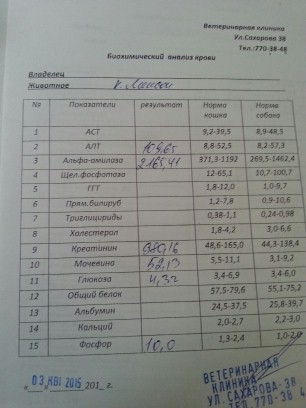 Ветеринарная клиника
Ул.Сахарова 38
Тел.:770-38-48
Биохимический анализ крови
Владелец
Животное к.
№ Показатели результат Норма кошка Норма собака
1 АСТ 9,2-39,5 8,9-48,5
2 АЛТ 109,65 8,8-52,5 8,2-57,3
3 Альфа-амилаза 2165,41 371,3-1192 269,5-1462,4
4 Щел.фосфотаза 12-65,1 10,7-100,7
5 ГГТ 1,8-12,0 1,0-9,7
6 Прям.билируб 1,2-7,8 0,9-10,6
7 Триглицириды 0,38-1,1 0,24-0,98
8 Холестерол 1,8-4,2 3,0-6,6
9 Креатинин 980,16 48,6-165,0 44,3-138,4
10 Мочевина 52,13 5,5-11,1 3,1-9,2
11 Глюкоза 4,32 3,4-6,9 3,4-6,0
12 Общий белок 57,5-79,6 55,1-75,2
13 Альбумин 24,5-37,5 25,8-39,7
14 Кальций 2,0-2,7 2,2-3,0
15 Фосфор 10,0 1,3-2,4 1,0-2,0
«03 КВІ 2015 201_ г.
ВЕТЕРИНАРНАЯ
КЛИНИКА
УЛ. САХАРОВА-38
ТЕЛ. 770-38